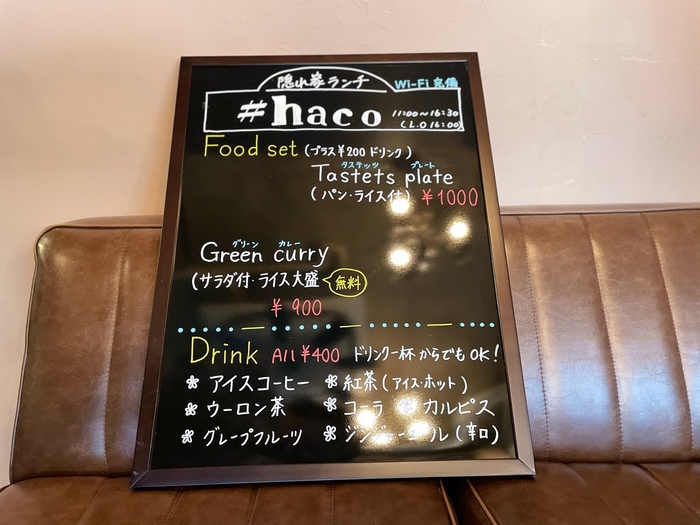 隠れ家ランチ Wi-Fi 完備
#haco 11:00〜16:30
(L.O 16:00)
Food set (プラス¥200 ドリンク)
タステッツ プレート
Tastets plate
(パン・ライス付) ¥1000
グリーン カレー
Green curry
(サラダ付・ライス大盛 無料
¥900
Drink All ¥400 ドリンク一杯からでもOK!
アイスコーヒー 紅茶(アイス・ホット)
ウーロン茶 コーラ カルピス
グレープフルーツ ジンジャーエール(辛口)